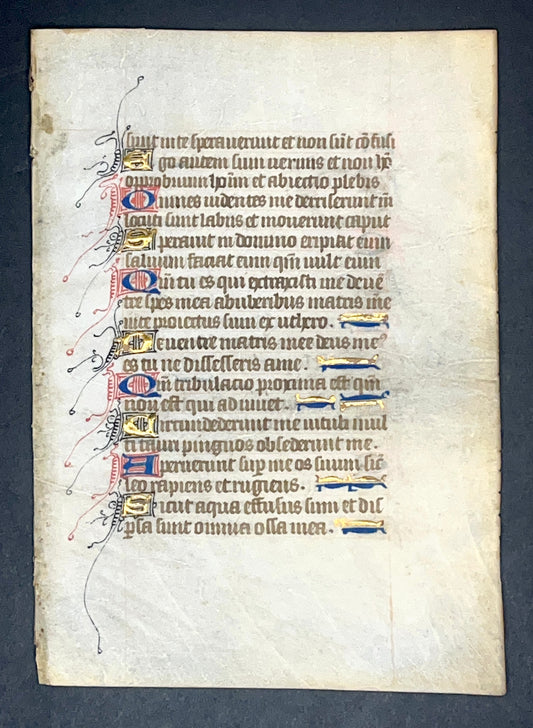 sunt in te speraverunt et non sũt cõfusi
Ego autem sum vermis et non hõ
opprobrium hoĩm et abiectio plebis
Omnes videntes me deriserunt m̃
locuti sunt labiis et moverunt caput
Speravit in domino eripiat eum
salvum faciat eum qm̃ vult eum
Qm̃ tu es qui extraxisti me de vẽ
tre spes mea ab uberibus matris mee
in te proiectus sum ex utero.
De ventre matris mee deus me⁹
es tu ne discesseris a me.
Qm̃ tribulacio proxima est qm̃
non est qui adiuvet.
Circundederunt me vituli mul
ti tauri pingues obsederunt me.
Aperuerunt sup̱ me os suum sic̃
leo rapiens et rugiens.
Sicut aqua effusus sum et dis
p̱sa sunt omnia ossa mea.